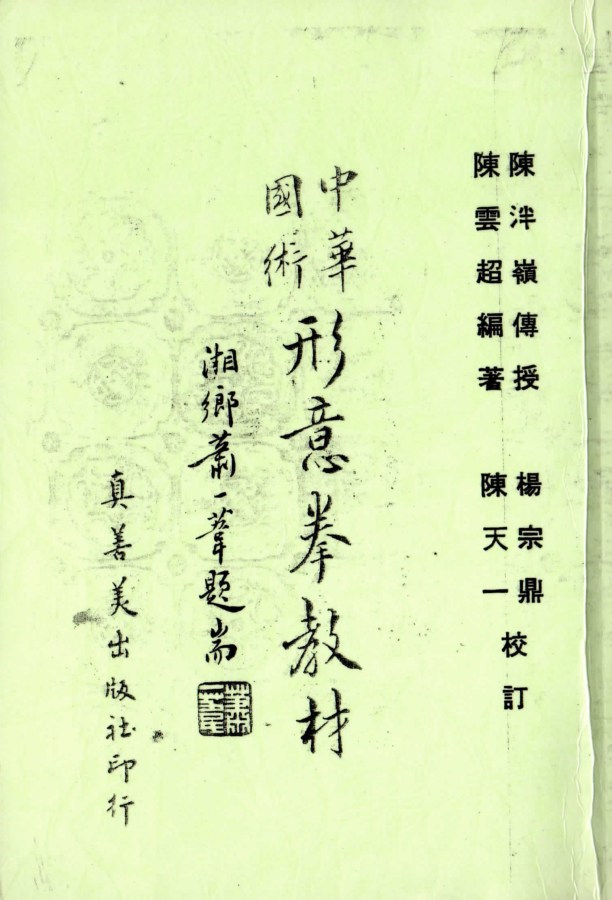 陳泮嶺傳授
陳雲超編著
楊宗鼎
陳天一
校訂
中華
國術
形意拳教材
湘鄉蕭一葦題耑
真善美出版社印行